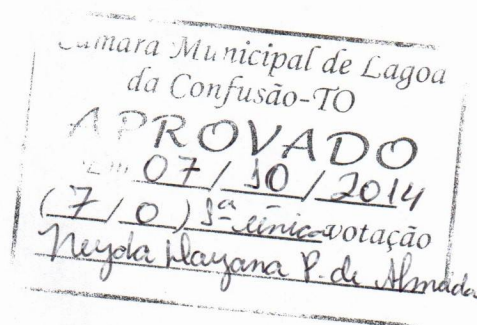 Câmara Municipal de Lagoa
da Confusão-TO
APROVADO
Em 07/10/2014
(7/0) 1ª única votação
Neyda Dayana P. de Almeida